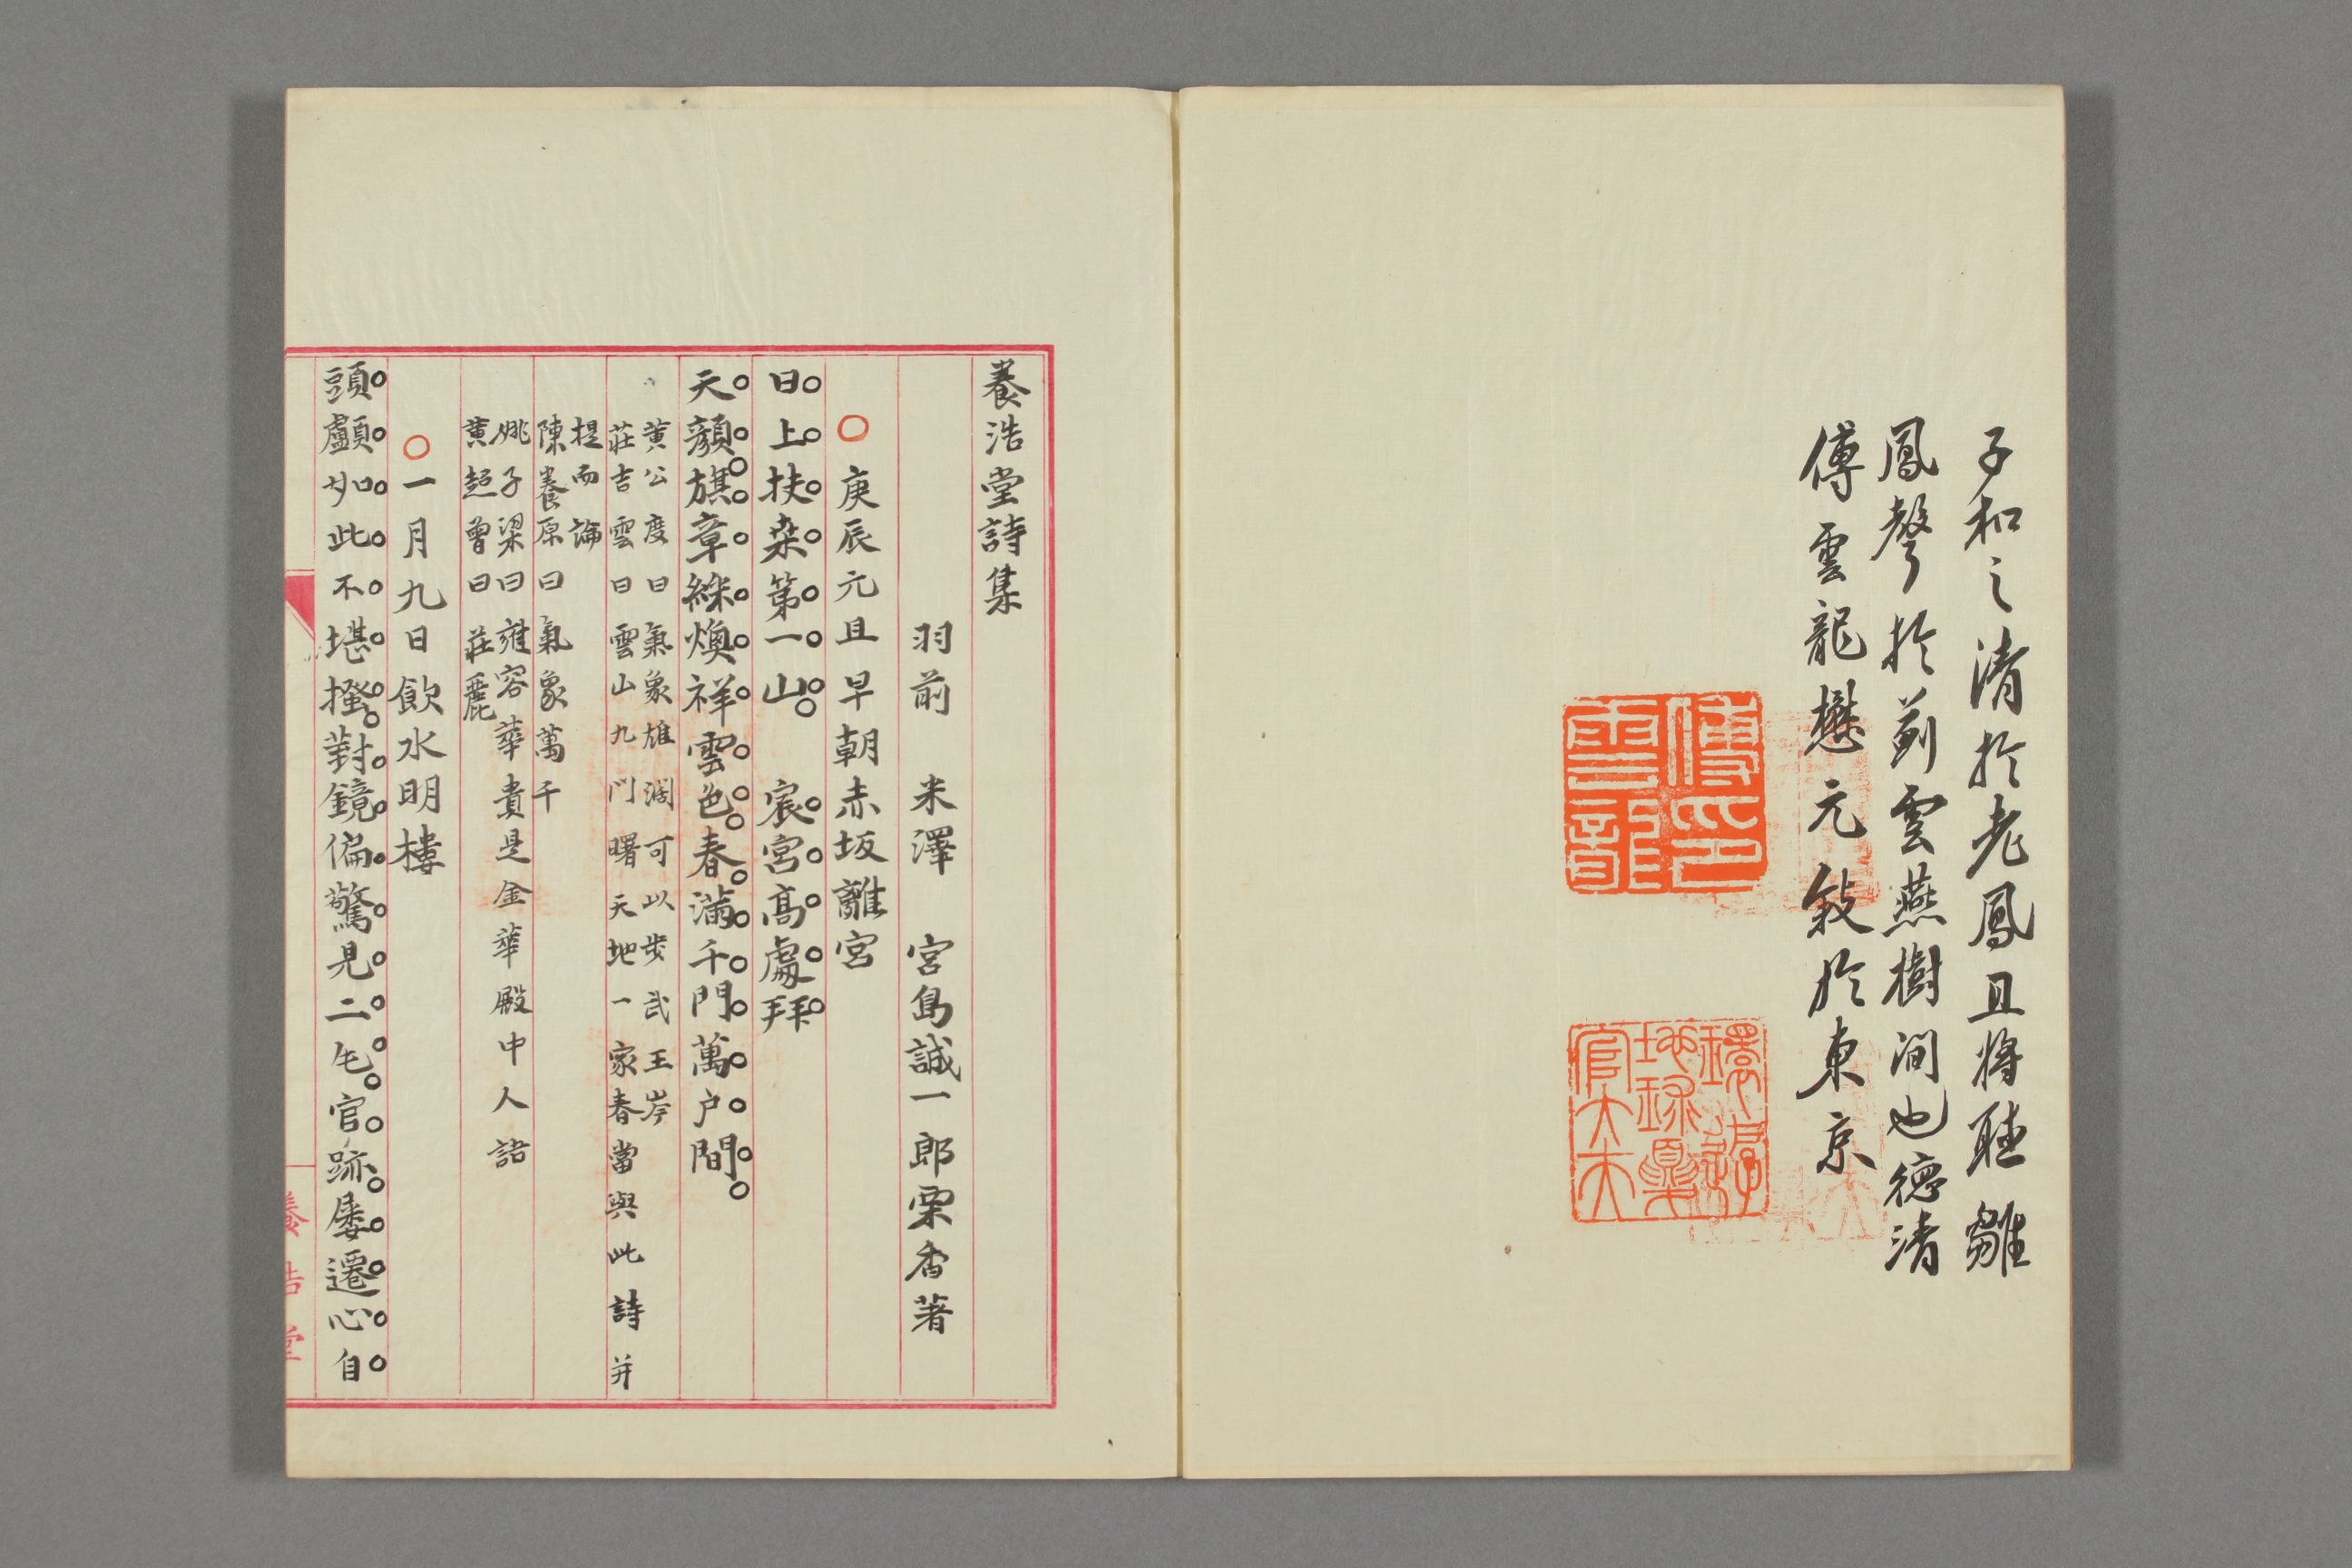 子和之清於老鳳且將聽雛
鳳聲於薊雲燕樹間也德清
傅雲龍懋元敘於東京
傅印雲龍
養浩堂詩集
羽前 米澤 宮島誠一郎栗香著
○庚辰元旦早朝赤坂離宮
日上扶桒第一山 宸宮高處拜
天顏旗章綵煥祥雲色春滿千門萬户間
黄公度曰氣象雄濶可以步武王岑
莊吉雲曰雲山九門曙天地一家春當與此詩并
提而論
陳養原曰氣象萬千
姚子梁曰雍容華貴是金華殿中人語
黄超曾曰莊麗
○一月九日飲水明樓
頭顱如此不堪搔對鏡偏驚見二毛官跡屡遷心自
養浩堂